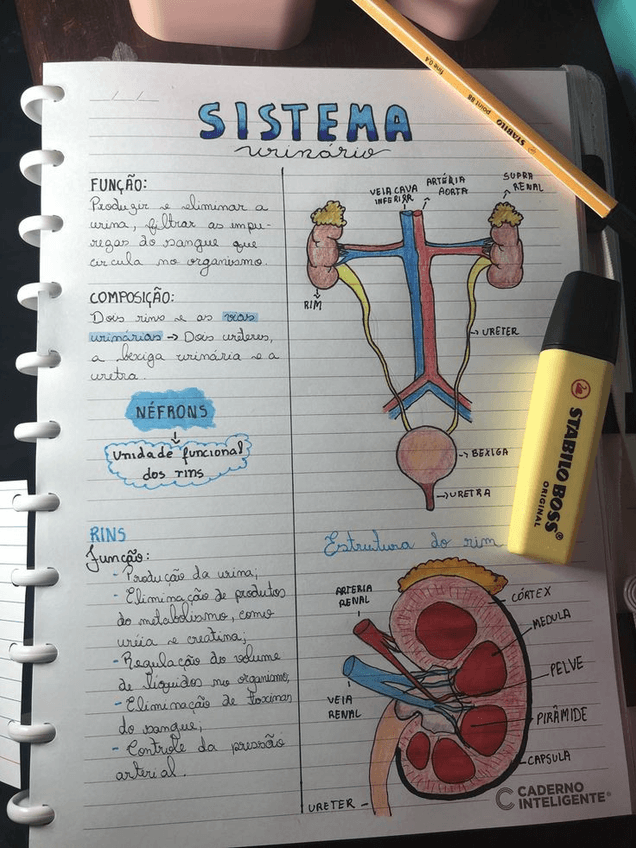 SISTEMA
urinário
FUNÇÃO:
Produzir e eliminar a
urina, filtrar as impu-
rezas do sangue que
circula no organismo.
COMPOSIÇÃO:
Dois rins e as vias
urinárias → Dois ureteres,
a bexiga urinária e a
uretra.
NÉFRONS
Unidade funcional
dos rins
RINS
função:
- Produção da urina;
- Eliminação de produtos
do metabolismo, como
uréia e creatina;
- Regulação do volume
de líquidos no organismo;
- Eliminação de toxinas
do sangue;
- Controle da pressão
arterial.
VEIA CAVA
INFERIOR
ARTÉRIA
AORTA
SUPRA
RENAL
RIM
URETER
BEXIGA
URETRA
Estrutura do rim
ARTERIA
RENAL
VEIA
RENAL
URETER
CÓRTEX
MEDULA
PELVE
PIRÂMIDE
CAPSULA
CADERNO
INTELIGENTE®
STABILO
point 88
fine 0,4
STABILO BOSS®
ORIGINAL